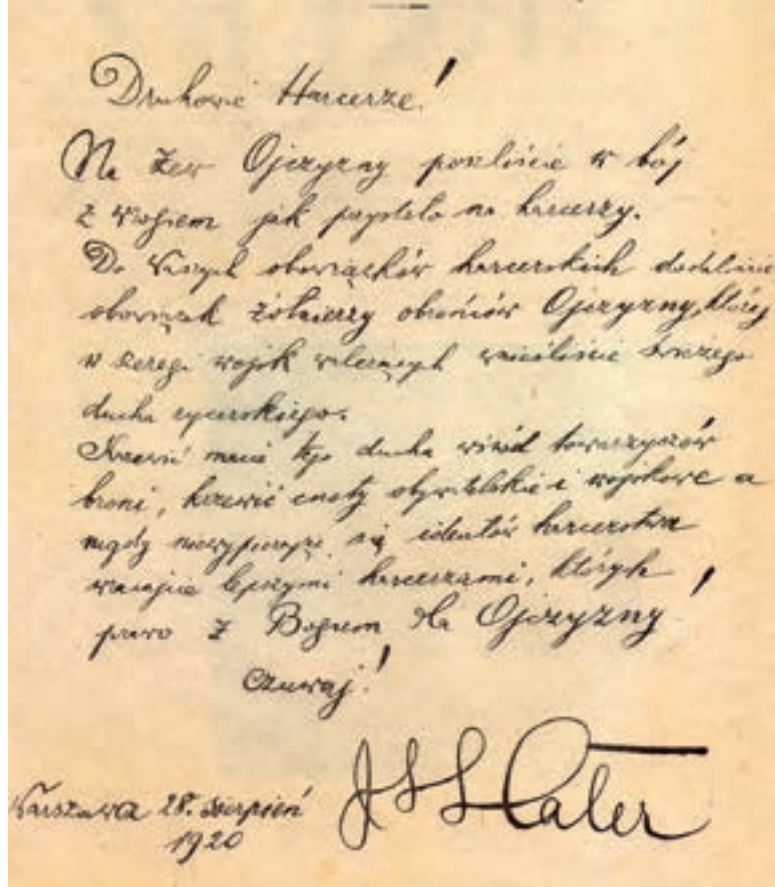 Druhowie Harcerze!
Na zew Ojczyzny poszliście w bój
z wrogiem jak przystało na harcerzy.
Do Waszych obowiązków harcerskich dodaliście
obowiązek żołnierzy obrońców Ojczyzny, której
w szeregi wojsk walecznych wnieśliście świeżego
ducha rycerskiego.
Krzewić macie tego ducha wśród towarzyszów
broni, krzewić cnoty obywatelskie i wojskowe a
nigdy się ideałów harcerstwa
wracajcie lepszymi harcerzami, których
prawo z Bogiem dla Ojczyzny!
Czuwaj!
Warszawa 28. sierpień
1920